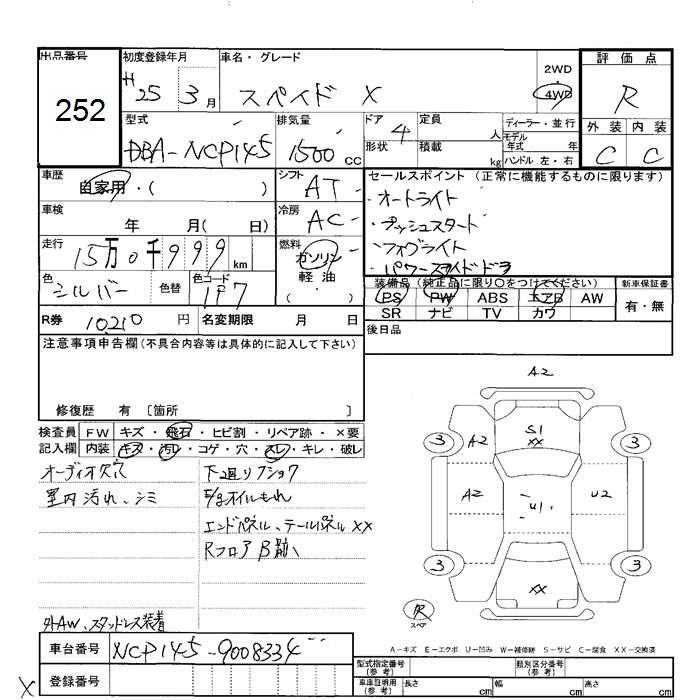 出品番号
252
初度登録年月
H 25 3 月
車名・グレード
スペイド X
2WD
4WD
評価点
R
型式
DBA-NCP145
排気量
1500 CC
ドア 4
定員 人
形状
積載 kg
ディーラー・並行
モデル年式 年
ハンドル 左・右
外装 内装
C C
車歴
自家用・( )
シフト AT
セールスポイント(正常に機能するものに限ります)
・オートライト
・プッシュスタート
・フォグライト
・パワースライドドア
車検
年 月( 日)
冷房 AC
走行
15万0千999 km
燃料
ガソリン
軽油
( ・ )
色 シルバー
色替
色コード 1F7
装備品(純正品に限り○をつけてください)
PS PW ABS エアB AW
SR ナビ TV カワ
新車保証書
有・無
R券 10210 円
名変期限 月 日
後日品
注意事項申告欄(不具合内容等は具体的に記入して下さい)
修復歴 有 〔箇所 〕
検査員記入欄
FW キズ・飛石・ヒビ割・リペア跡・×要
内装 キズ・汚レ・コゲ・穴・スレ・キレ・破レ
オーディオ欠穴
室内汚れ、シミ
下廻りフショク
エンドパネル、テールパネルXX
外AW、スタッドレス装着
A2
S1
XX
3 3
A2
A2 U1 U2
3 3
XX
R
スペア
A-キズ E-エクボ U-凹み W-補修跡 S-サビ C-腐食 XX-交換済
車台番号 NCP145-9008334
登録番号
X
型式指定番号(参考)
類別区分番号(参考)
車庫証明用(参考) 長さ cm 幅 cm 高さ cm